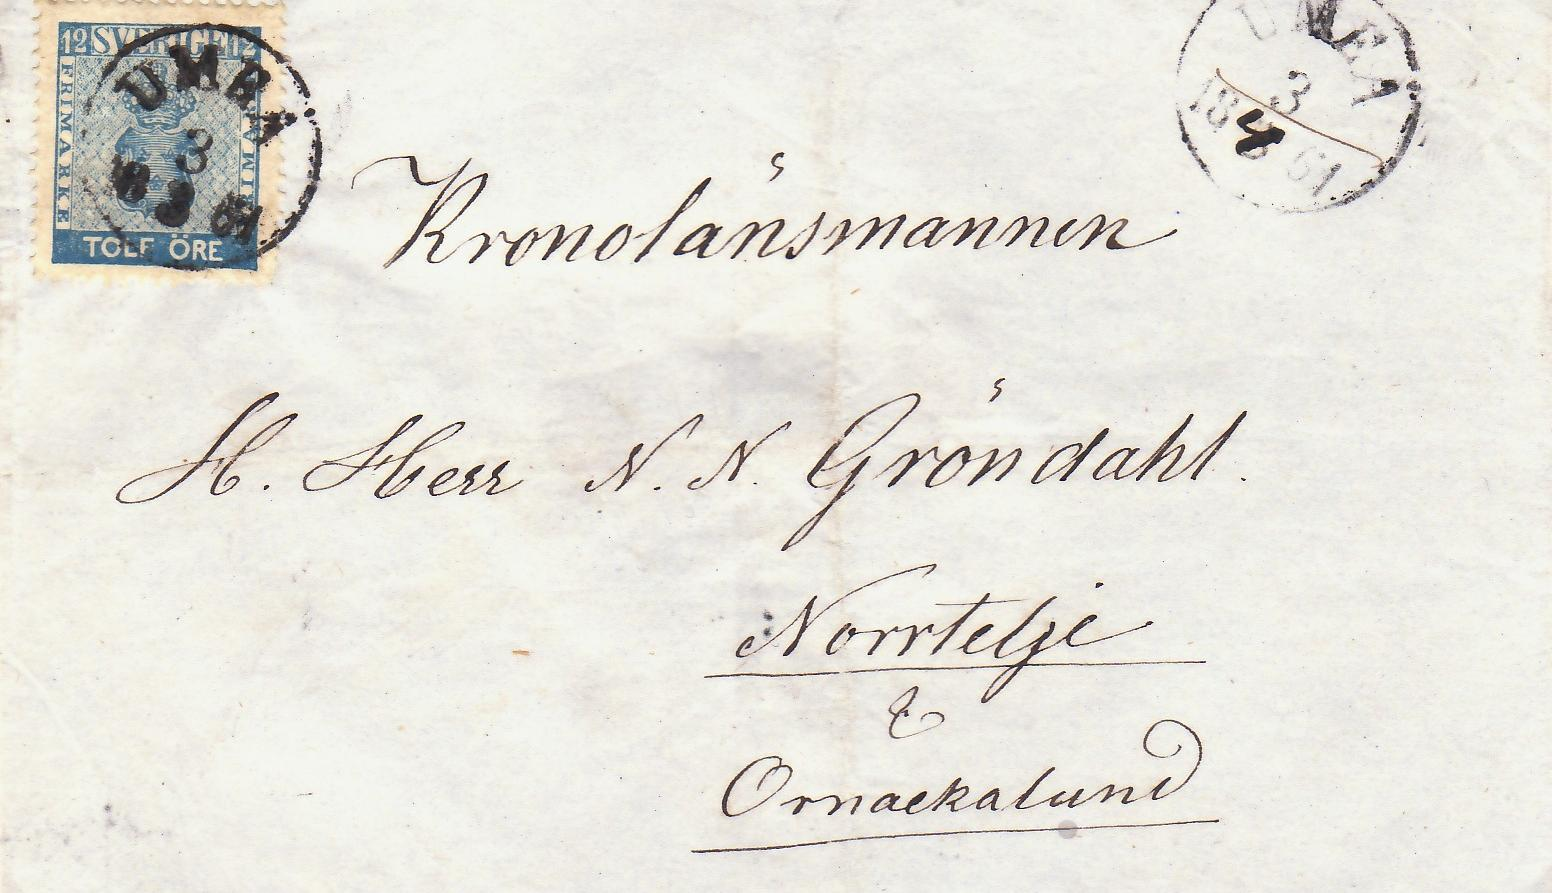 12 SVERIGE 12
FRIMÄRKE
TOLF ÖRE
UMEÅ
3
UMEÅ
3
18 4 61
Kronolänsmannen
H. Herr N. N. Gröndahl.
Norrtelje
&
Ornäekalund